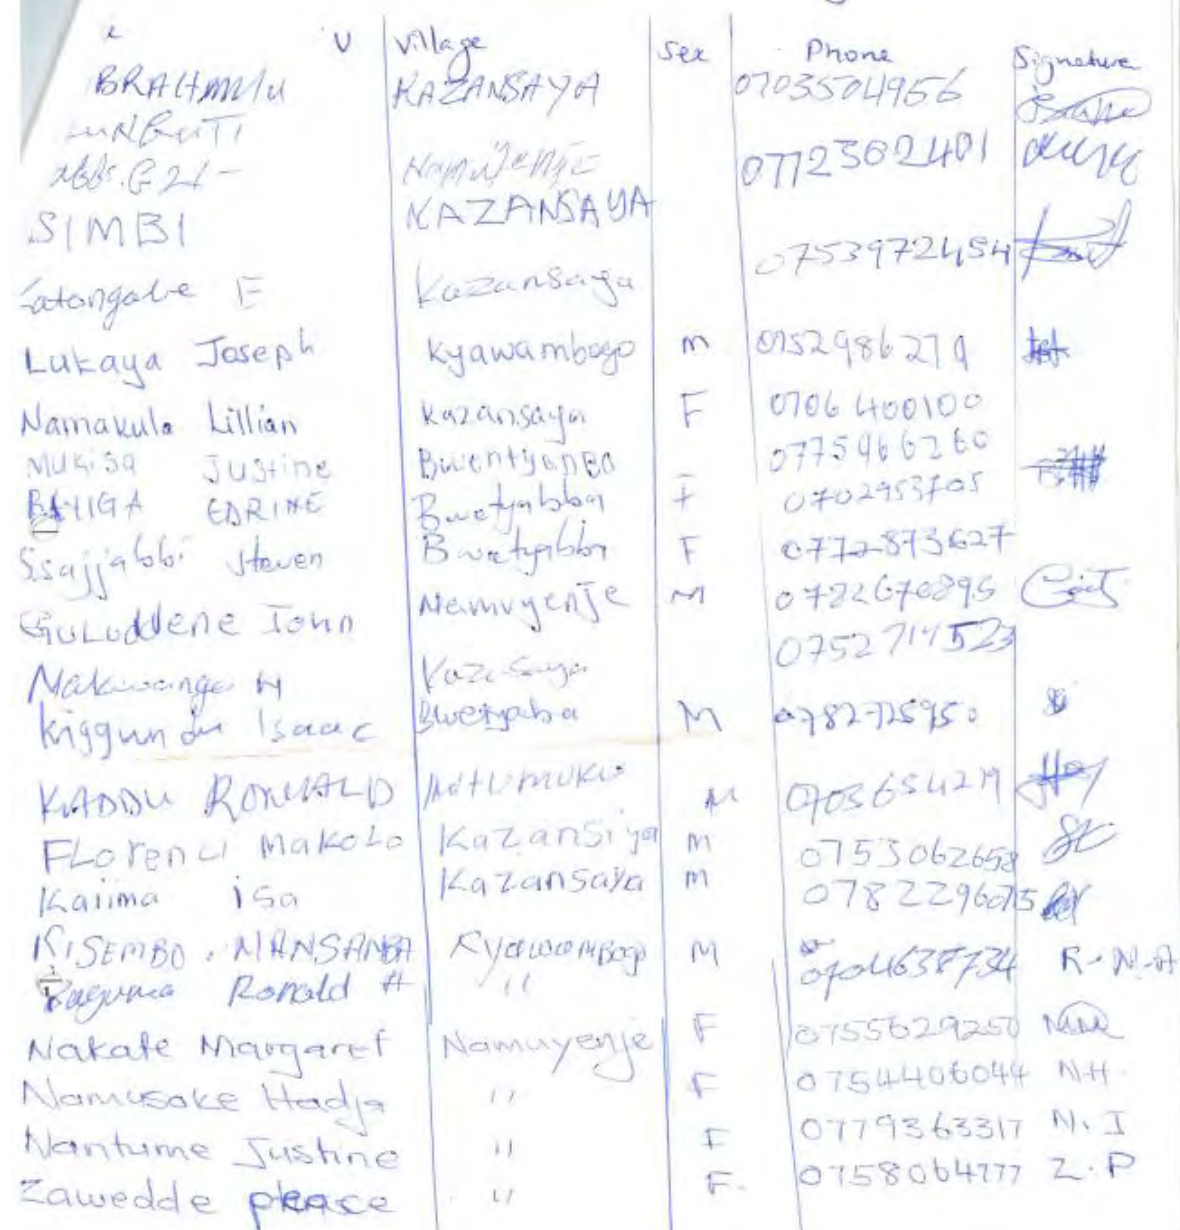 Village Sex Phone Signature
KAZANSAYA 0703504966
LUNBUTI
Namuyenje 0772302401
SIMBI KAZANSAYA
Katongole E Kazansaya 0753972454
Lukaya Joseph Kyawambogo M 0752986279
Namakula Lillian Kazansaya F 0706400100
Mukisa Justine Bwentyanbo 0775966260
BAYIGA EDRINE Bwetyabba F 0702953705
Ssajjabbi Steven Bwetyabba F 0772873627
GULUDDENE John Namuyenje M 0782670895
Nakwange H 0752714523
Kiggundu Isaac Bwetyaba M 0782725950
KADDU RONALD M 0703654219
FLorenci Makolo Kazansiya M 0753062658
Kaiima isa Kazansaya M 0782229675
KISEMBO . MANSANBA Kyawambogo M 0704638734 R.N.A
Baguma Ronald A "
Nakate Margaret Namuyenje F 0755629250
Namusoke Hadja " F 0754406044 N.H.
Nantume Justine " F 0779363317 N.J
Zawedde peace " F. 0758064777 Z.P